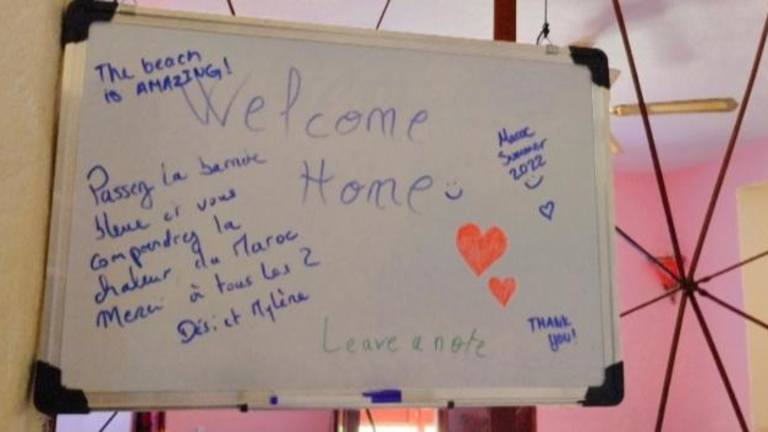 The beach
is AMAZING!
Welcome
Home
Maroc
Summer
2022
Passez la barrière
bleue et vous
comprendrez la
chaleur du Maroc
Merci à tous les 2
Dési et Mylène
Leave a note
THANK
YOU!